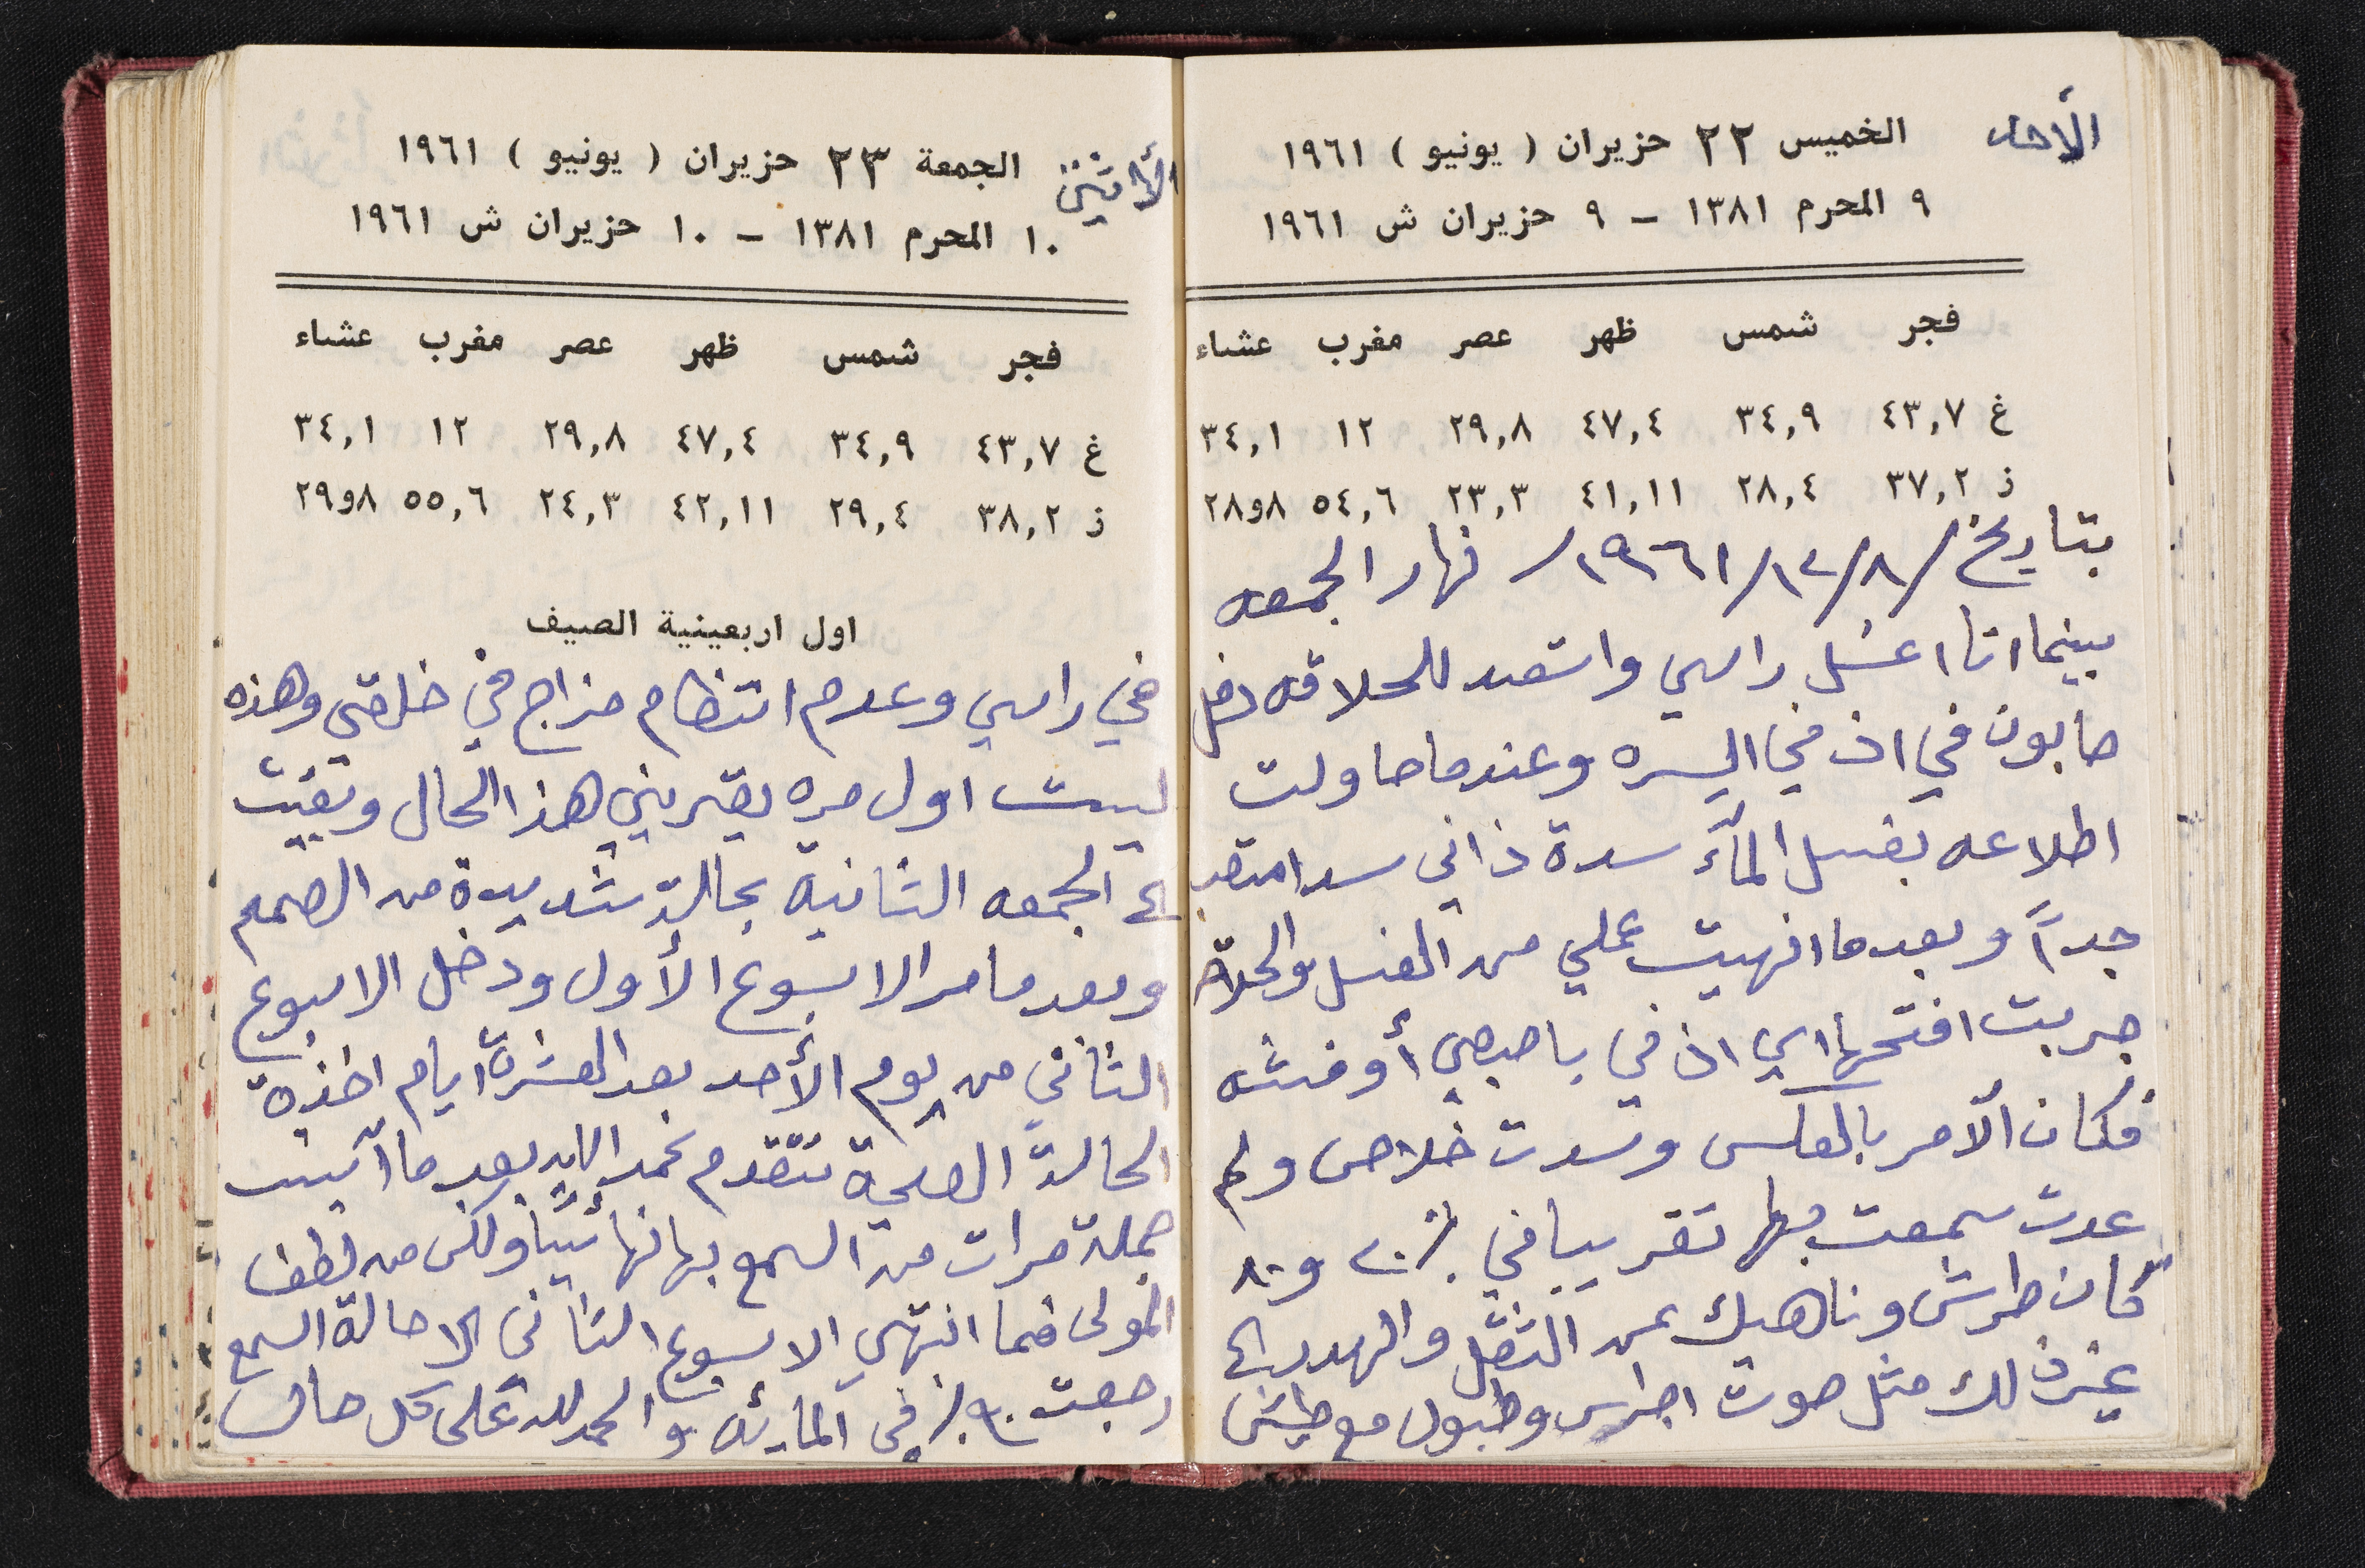 الأحد
الخميس ٢٢ حزيران ( يونيو ) ١٩٦١
٩ المحرم ١٣٨١ - ٩ حزيران ش ١٩٦١
فجر شمس ظهر عصر مغرب عشاء
غ ٤٣,٧ ٣٤,٩ ٤٧,٤ ٢٩,٨ ١٢ ٣٤,١
ز ٣٧,٢ ٢٨,٤ ٤١,١١ ٢٣,٣ ٥٤,٦ ٨و٢٨
بتاريخ /٨/١٢/١٩٦١/ نهار الجمعه
بينما انا اغسل راسي واستعد للحلاقه دخل
صابون في اذني اليسره وعندما حاولت
اطلاعه بغسل المآء سدة ذاني سدا
جداً وبعدما انهيت عملي من الغسل والحلاقه
جربت افتحها اي اذني باصبعي أو
فكان الآمر بالعكس وسدت خلاص ولم
عدت سمعت بها تقريبا في ٪٢٠ و٨٠
كان طرش وناهيك عن الثقل والهدير الى
غيرذلك مثل صوت اجراس وطبول مع طيش
الأاثنين
الجمعة ٢٣ حزيران ( يونيو ) ١٩٦١
١٠ المحرم ١٣٨١ - ١٠ حزيران ش ١٩٦١
فجر شمس ظهر عصر مغرب عشاء
غ ٤٣,٧ ٣٤,٩ ٤٧,٤ ٢٩,٨ ١٢ ٣٤,١
ز ٣٨,٢ ٢٩,٤ ٤٢,١١ ٢٤,٣ ٥٥,٦ ٨و٢٩
اول اربعينية الصيف
في راسي وعدم انتظام مزاج في خلقتي وهذه
ليست اول مره يصيرني هذا الحال وبقيت
الى الجمعه الثانية بحالة شديدة من الصمم
وبعدما مر الاسبوع الأول ودخل الاسبوع
الثاني من يوم الأحد بعد العشرة ايام اخذة
الحالة الصحية تتقدم بحمد الله بعد ما آيست
جملة مرات من السمع بها نهائيًا ولكن من لطف
المولى فما انتهى الاسبوع الثاني الا حالة السمع
رجعت ٩٠٪ في المايئه والحمد لله على كل حال